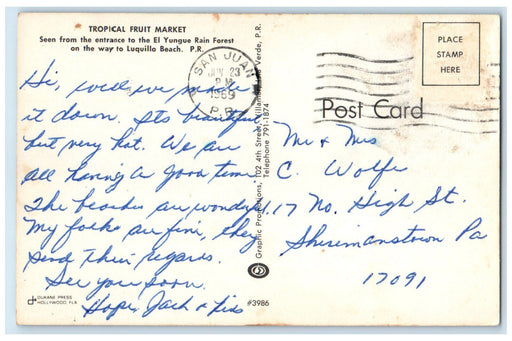 TROPICAL FRUIT MARKET
Seen from the entrance to the El Yungue Rain Forest
on the way to Luquillo Beach. P.R.
Hi, well we made
it down. Its beautiful
but very hot. We are
all having a good time
The beaches are wonderful.
My folks are fine, they
send their regards.
See you soon.
Hope, Jack &
DUKANE PRESS
HOLLYWOOD, FLA
#3986
Graphic Productions, 102 4th Street, Villamar, Isla Verde, P.R.
Telephone 791-1874
SAN JUAN
23
PM
1969
P.R.
PLACE
STAMP
HERE
Post Card
Mr & Mrs
C. Wolfe
17 No. High St.
Shiremanstown Pa
17091